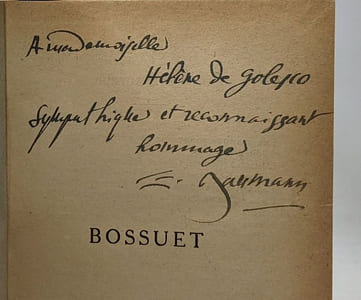 A mademoiselle
Hélène de Golesco
Sympathique et reconnaissant
hommage
E. Baumann
BOSSUET